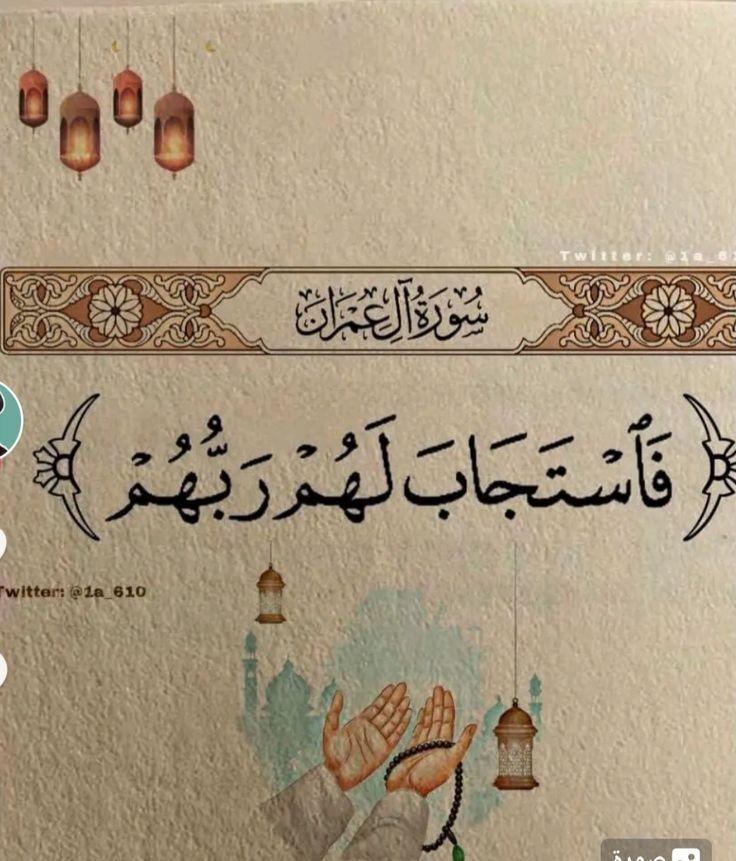 Twitter: @1a_6
سُورَةُ آلِ عِمْرَانَ
فَٱسْتَجَابَ لَهُمْ رَبُّهُمْ
Twitter: @1a_610
صورة